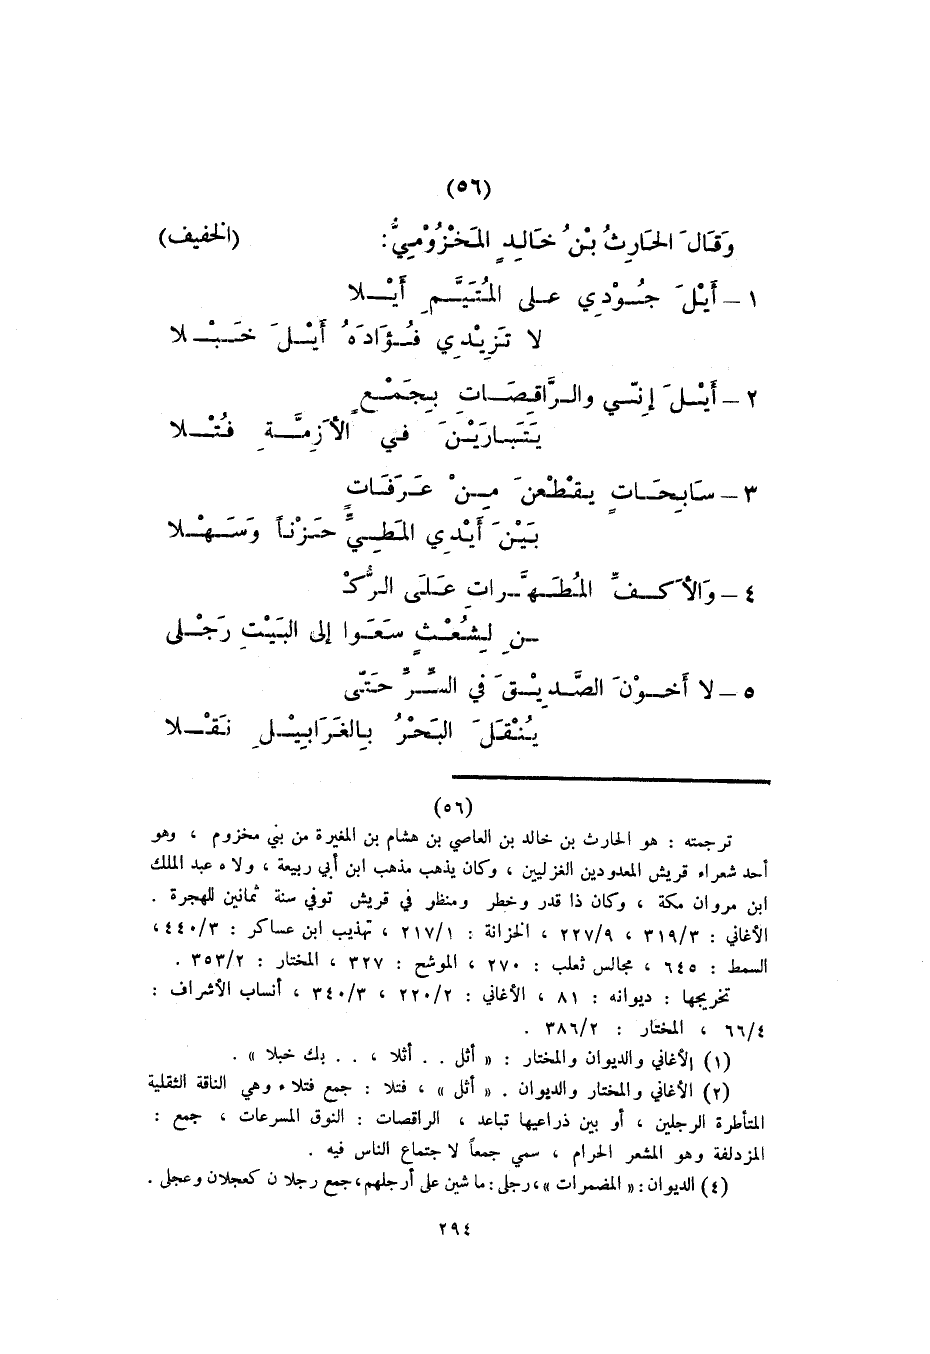 (٥٦)
وَقَالَ الحَارِثُ بْنُ خَالِدٍ المَخْزُوْمِيُّ: (الخفيف)
١ – أَيْلَ جُوْدِي على المُتَيَّمِ أَيْلا
لا تَزِيْدِي فُؤَادَهُ أَيْلَ خَبْلا
٢ – أَيْلَ إِنّي والرَّاقِصَاتِ بِجَمْعٍ
يَتَبارَيْنَ في الأَزِمَّةِ فُتْلا
٣ – سَابِحَاتٍ يقْطْعنَ مِنْ عَرَفَاتٍ
بَيْنَ أَيْدِي المَطِيِّ حَزْناً وَسَهْلا
٤ – وَالأَكفِّ المُطَهَّراتِ عَلَى الرُّكْـ
ـنِ لِشُعْثٍ سَعَوا إلى البَيْتِ رَجْلى
٥ – لا أَخوْنَ الصَّدِيْقَ في السِّرِّ حَتّى
يُنْقَلَ البَحْرُ بِالغَرَابِيْلِ نَقْلا
(٥٦)
ترجمته : هو الحارث بن خالد بن العاصي بن هشام بن المغيرة من بني مخزوم ، وهو
أحد شعراء قريش المعدودين الغزليين ، وكان يذهب مذهب ابن أبي ربيعة ، ولاه عبد الملك
ابن مروان مكة ، وكان ذا قدر وخطر ومنظر في قريش توفي سنة ثمانين للهجرة .
الأغاني : ٣١٩/٣ ، ٢٢٧/٩ ، الخزانة : ٢١٧/١ ، تهذيب ابن عساكر : ٤٤٠/٣ ،
السمط : ٦٤٥ ، مجالس ثعلب : ٢٧٠ ، الموشح : ٣٢٧ ، المختار : ٣٥٣/٢ .
تخريجها : ديوانه : ٨١ ، الأغاني : ٢٢٠/٢ ، ٣٤٠/٣ ، أنساب الأشراف :
٦٦/٤ ، المختار : ٣٨٦/٢ .
(١) الأغاني والديوان والمختار : « أثل . . أثلا ، . . بك خبلا » .
(٢) الأغاني والمختار والديوان . « أثل » ، فتلا : جمع فتلاء وهي الناقة الثقلية
المتأطرة الرجلين ، أو بين ذراعيها تباعد ، الراقصات : النوق المسرعات ، جمع :
المزدلفة وهو المشعر الحرام ، سمي جمعاً لاجتماع الناس فيه .
(٤) الديوان : « المضمرات » ، رجلى : ماشين على أرجلهم ، جمع رجلان كعجلان وعجلى .
٢٩٤